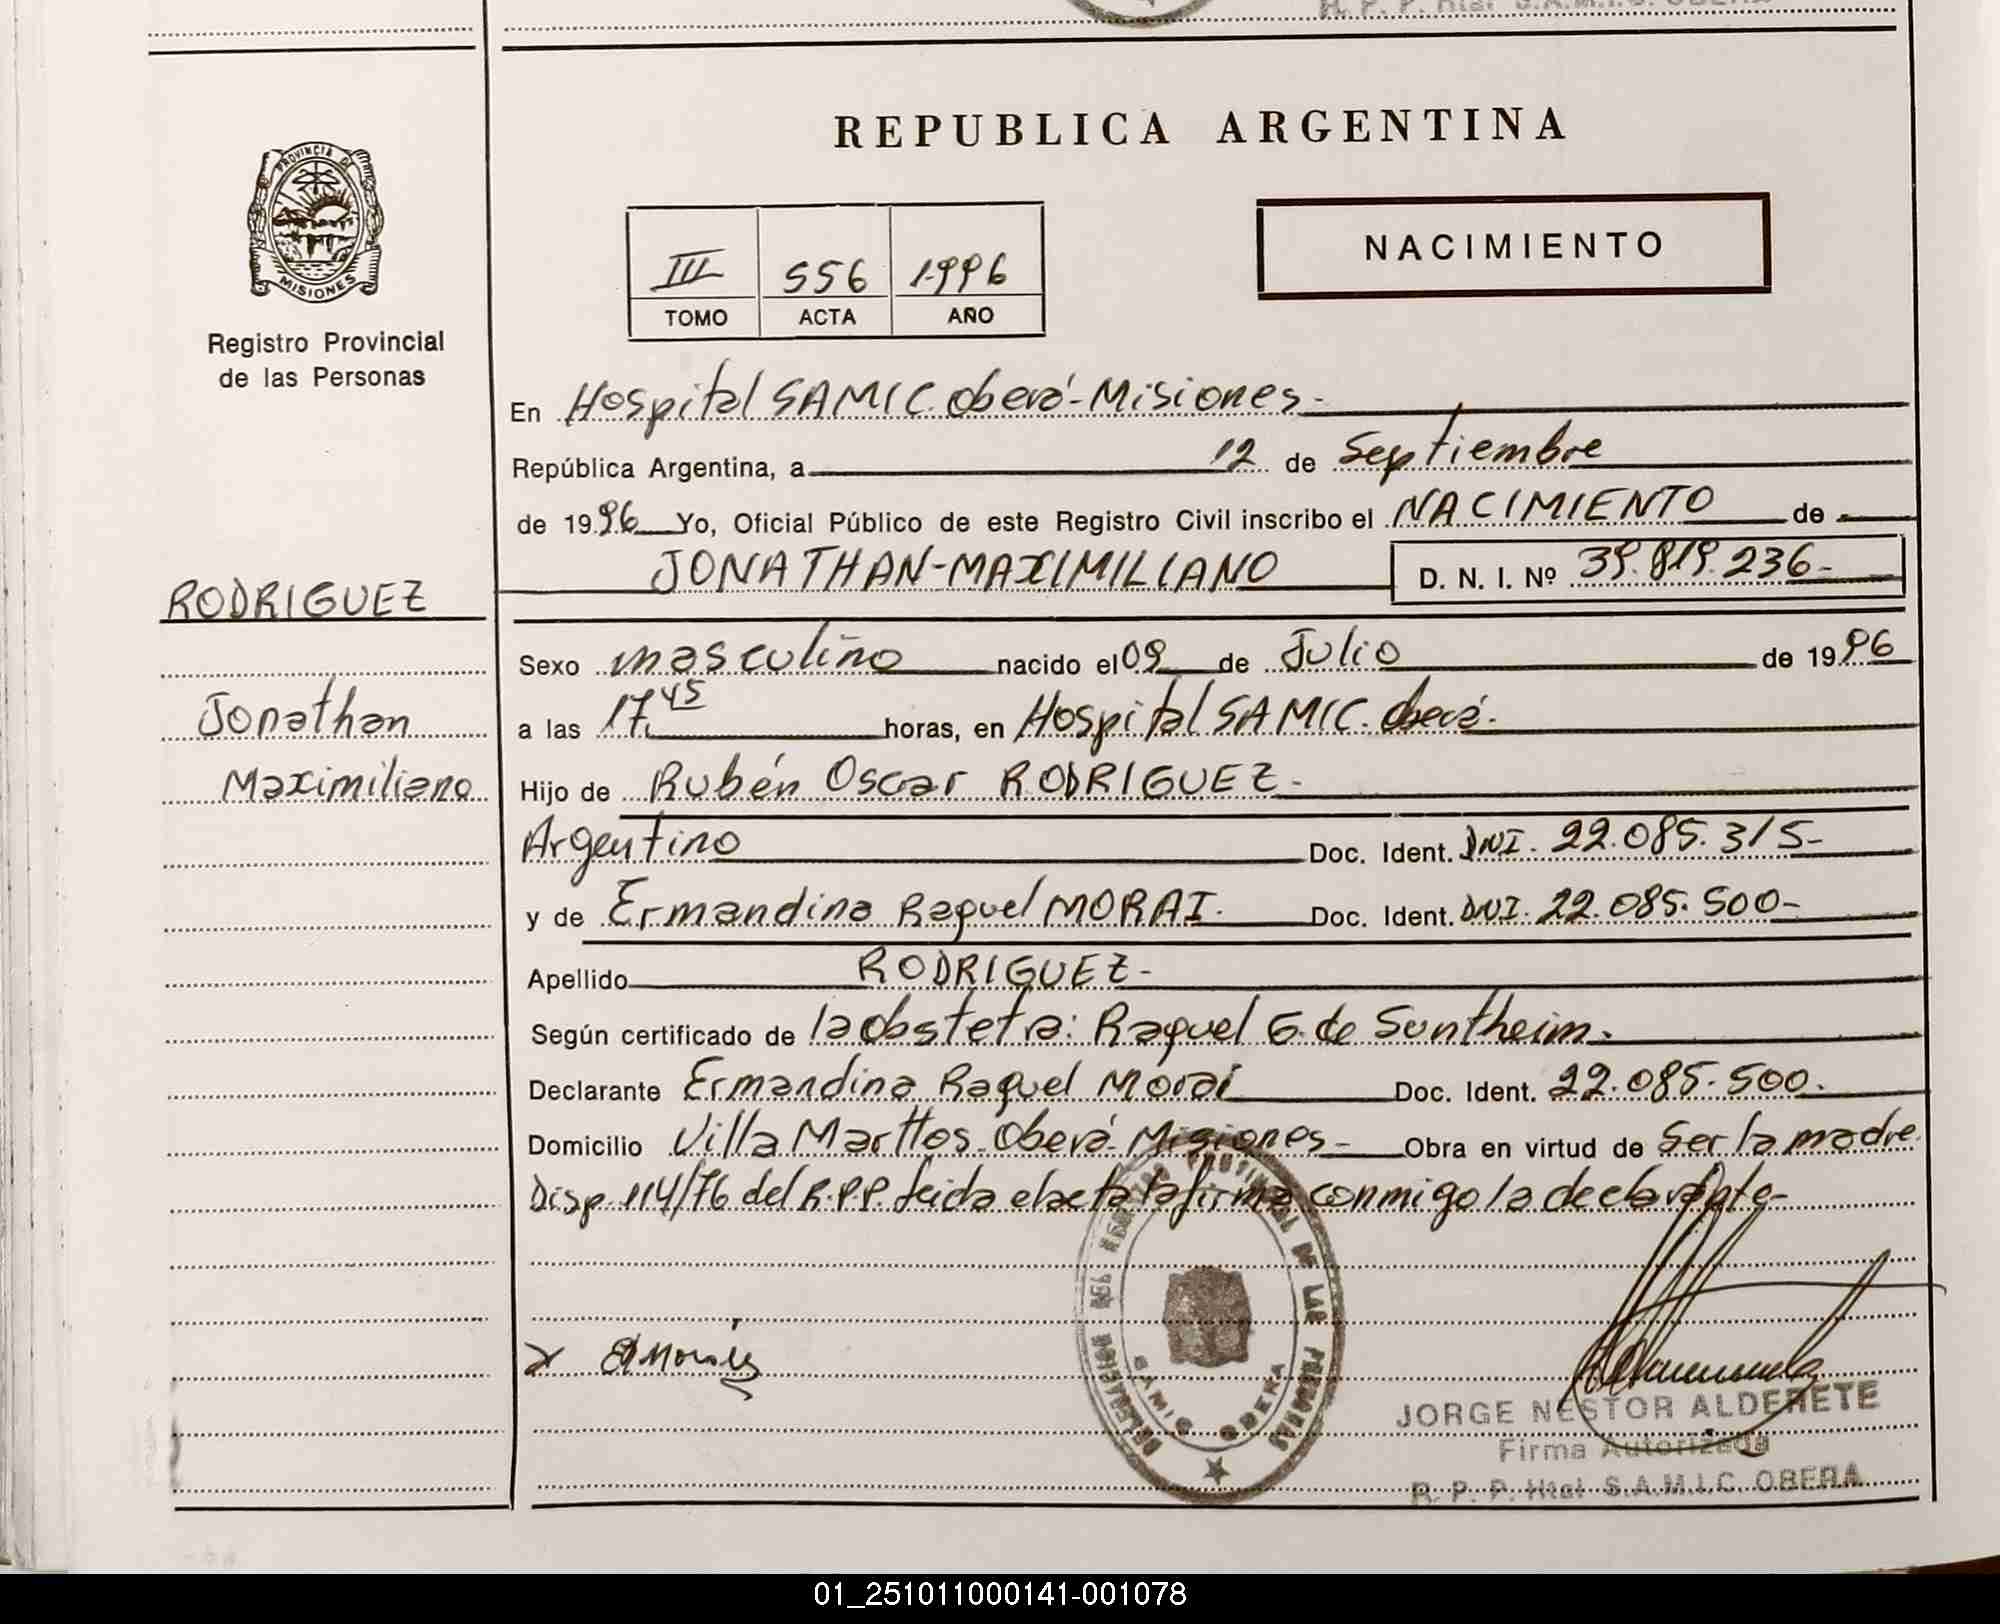 H. P. P. Htal S.A.M.I.C. OBERA
REPUBLICA ARGENTINA
PROVINCIA DE
MISIONES
NACIMIENTO
III 556 1.996
TOMO ACTA AÑO
Registro Provincial
de las Personas
En Hospital SAMIC. Oberá-Misiones-
República Argentina, a 12 de Septiembre
de 1996 Yo, Oficial Público de este Registro Civil inscribo el NACIMIENTO de
JONATHAN-MAXIMILIANO D. N. I. Nº 39.819.236-
RODRIGUEZ
Jonathan
Maximiliano
Sexo masculino nacido el 09 de Julio de 1996
a las 17.45 horas, en Hospital SAMIC. Oberá.
Hijo de Rubén Oscar RODRIGUEZ-
Argentino Doc. Ident. DNI. 22.085.315-
y de Ermandina Raquel MORAI. Doc. Ident. DNI. 22.085.500-
Apellido RODRIGUEZ-
Según certificado de la obstetra: Raquel G. de Suntheim.
Declarante Ermandina Raquel Morai Doc. Ident. 22.085.500.
Domicilio Villa Marttos. Oberá-Misiones- Obra en virtud de Ser la madre.
Disp. 114/76 del R.P.P. leida el acta la firma conmigo la declarante-
DELEGACION DEL REGISTRO PROVINCIAL DE LAS PERSONAS
SAMIC OBERA
x
JORGE NESTOR ALDERETE
Firma Autorizada
R. P. P. Htal S.A.M.I.C. OBERA
01_251011000141-001078